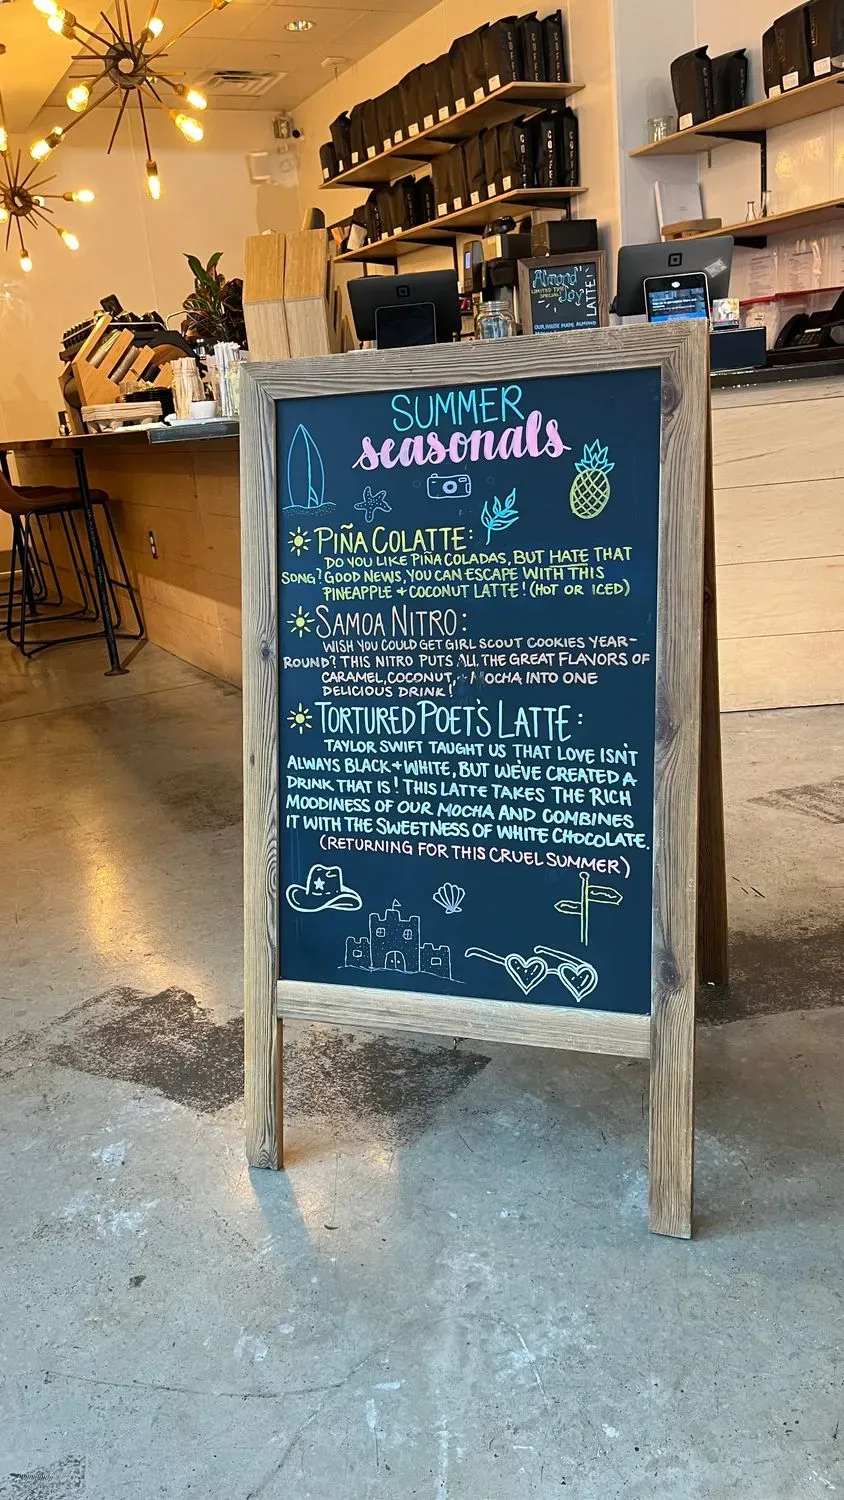 COFFEE
COFFEE
Almond
LIMITED TIME
SPECIAL
Joy
LATTE!
OUR HOUSE MADE ALMOND
SUMMER
seasonals
PIÑA COLATTE:
DO YOU LIKE PIÑA COLADAS, BUT HATE THAT
SONG? GOOD NEWS, YOU CAN ESCAPE WITH THIS
PINEAPPLE + COCONUT LATTE! (HOT OR ICED)
SAMOA NITRO:
WISH YOU COULD GET GIRL SCOUT COOKIES YEAR-
ROUND? THIS NITRO PUTS ALL THE GREAT FLAVORS OF
CARAMEL, COCONUT, + MOCHA INTO ONE
DELICIOUS DRINK!
TORTURED POET'S LATTE:
TAYLOR SWIFT TAUGHT US THAT LOVE ISN'T
ALWAYS BLACK + WHITE, BUT WE'VE CREATED A
DRINK THAT IS! THIS LATTE TAKES THE RICH
MOODINESS OF OUR MOCHA AND COMBINES
IT WITH THE SWEETNESS OF WHITE CHOCOLATE.
(RETURNING FOR THIS CRUEL SUMMER)